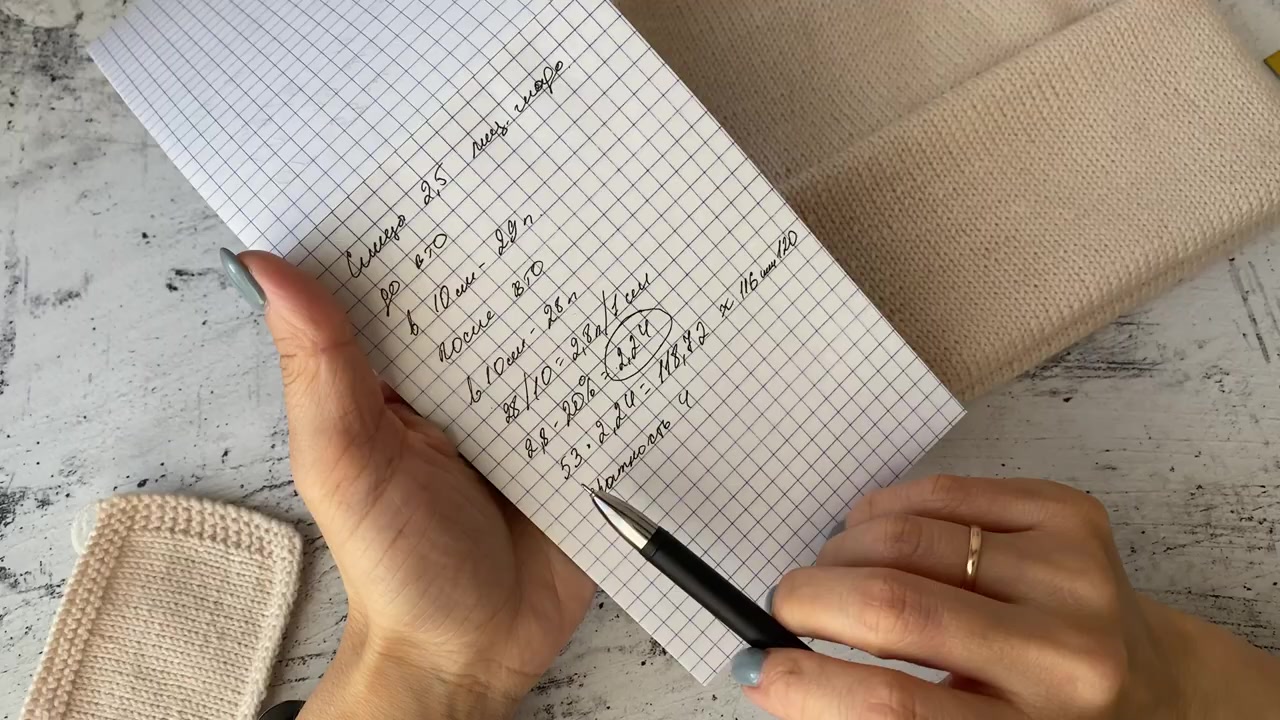 Спицы 2,5 лиц. гладь
до ВТО
в 10 см - 29 п
после ВТО
в 10 см - 28 п
28/10 = 2,8 п/1 см
2,8 - 20% = 2,24
53 · 2,24 = 118,72 x 116 или 120
кратность 4